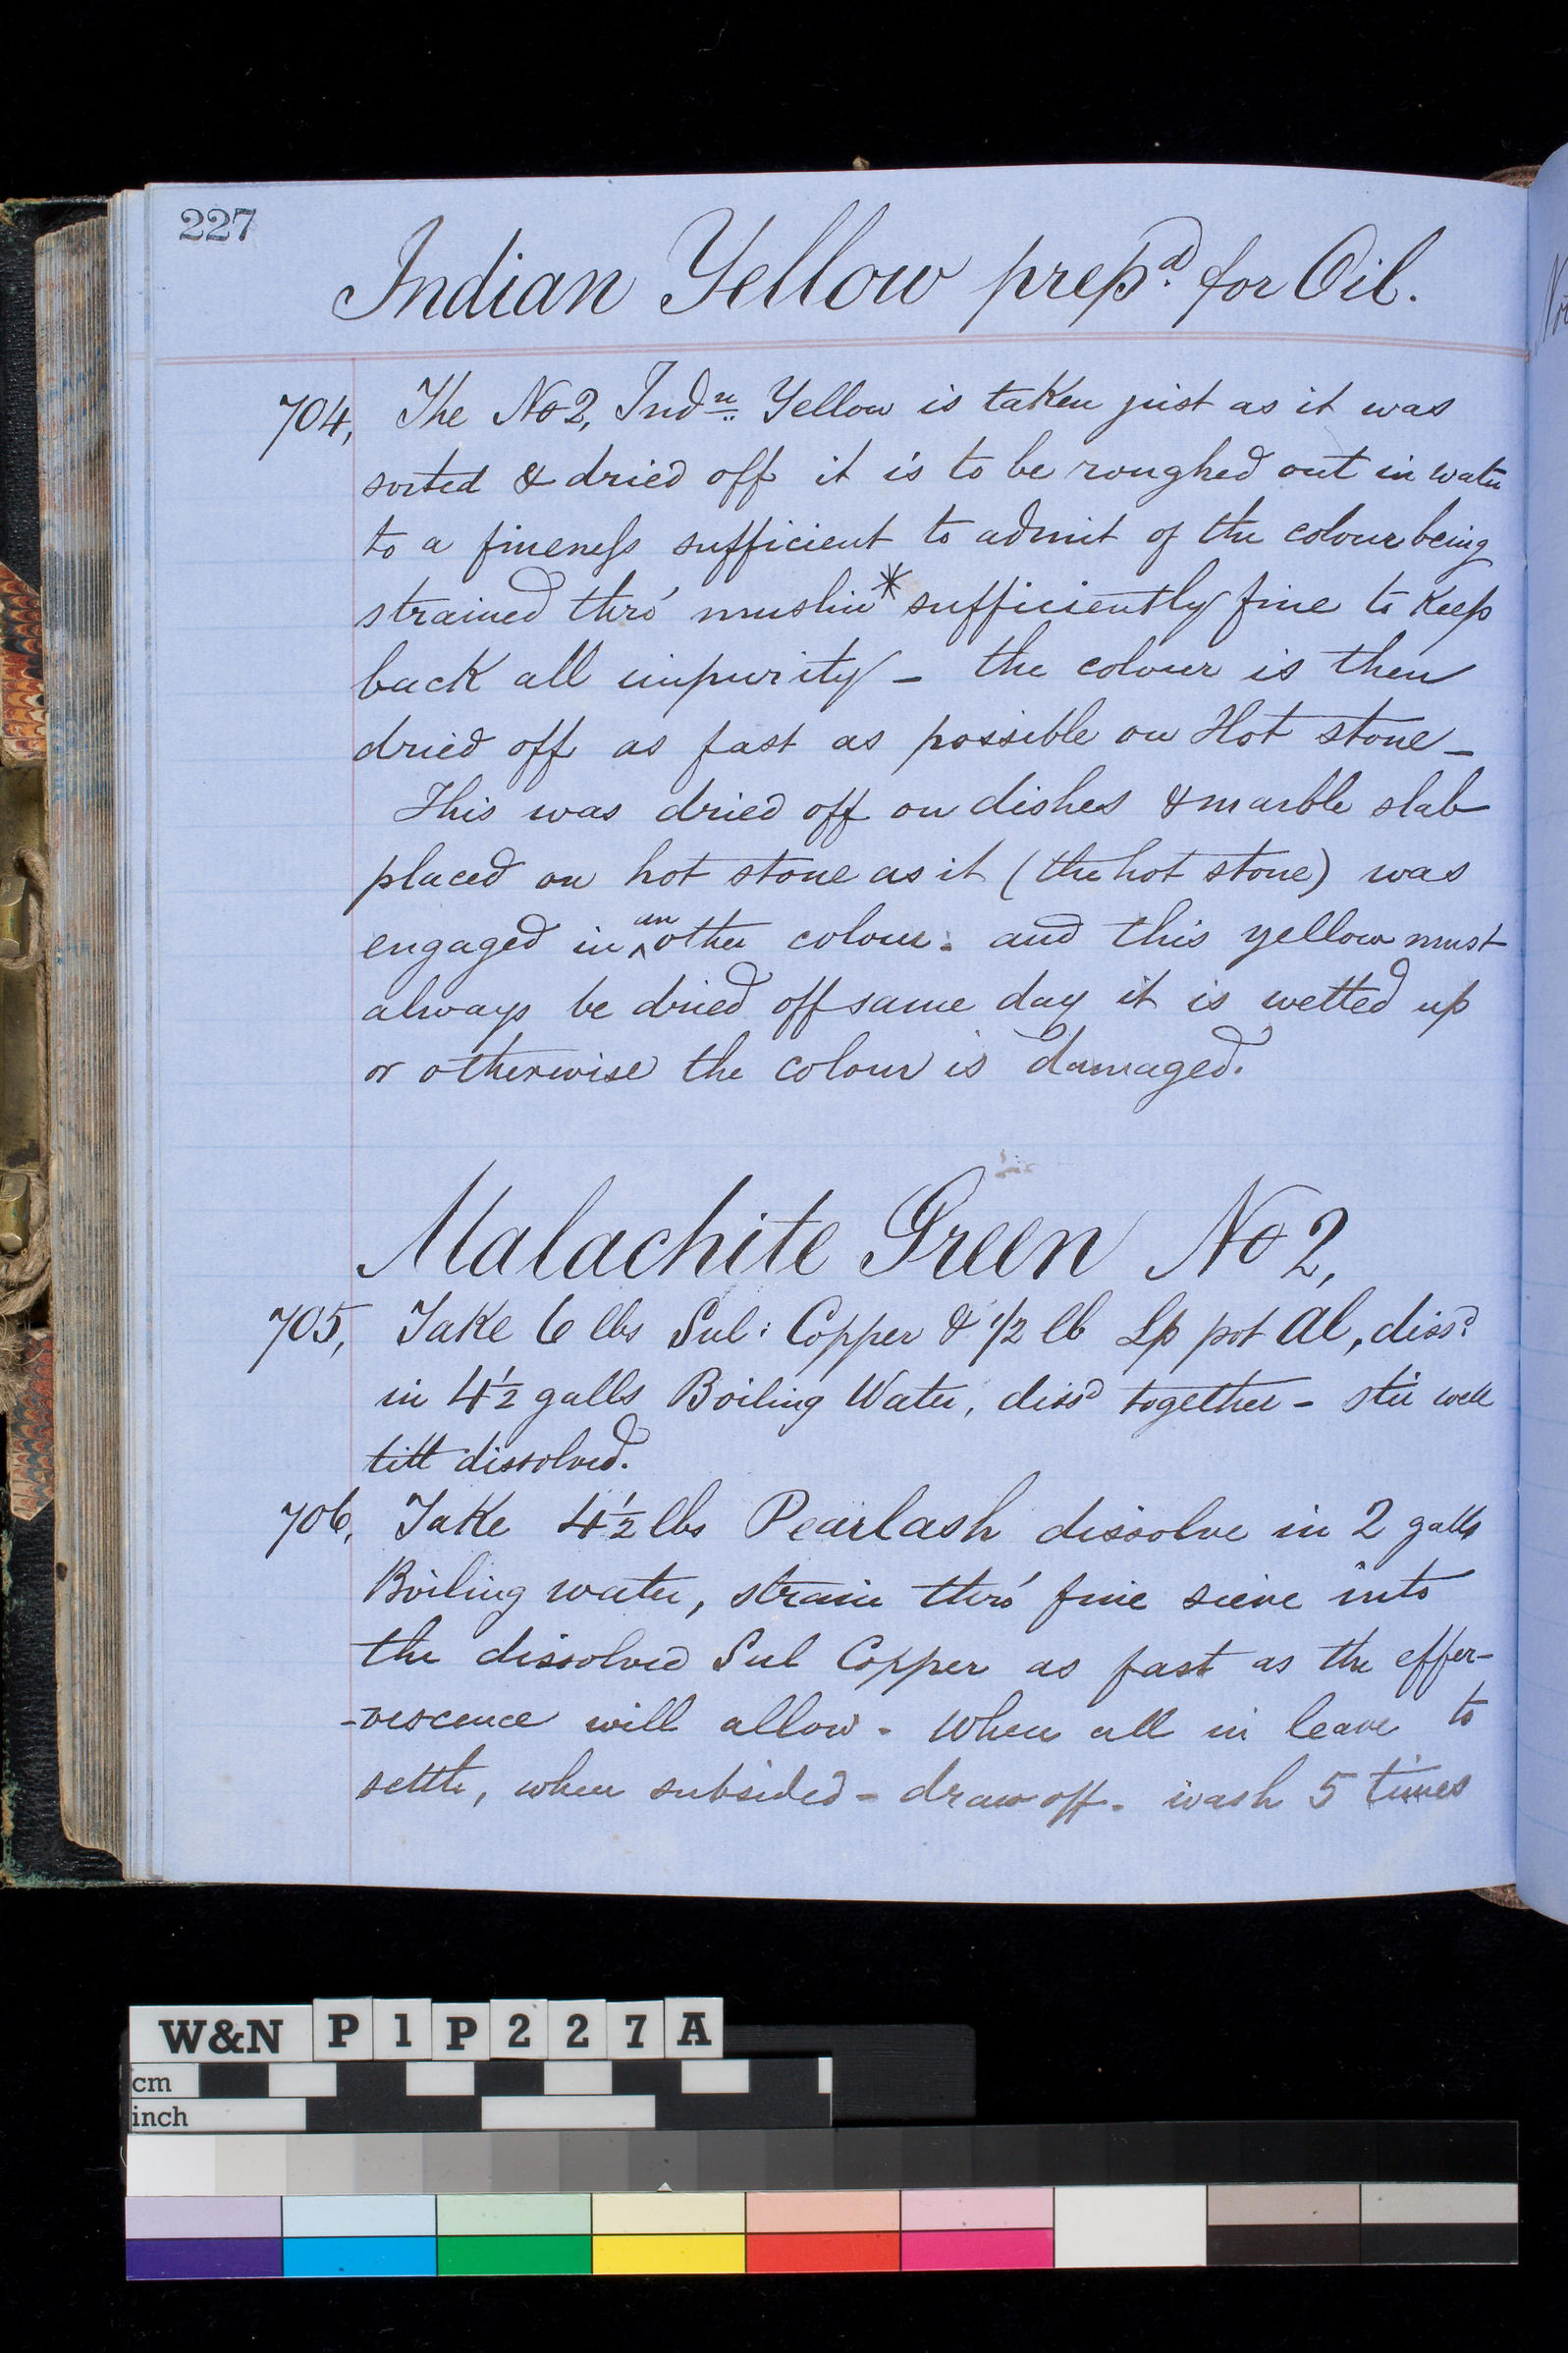 227
Indian Yellow prepd. for Oil.
704, The No 2, Indn. Yellow is taken just as it was
sorted & dried off it is to be roughed out in water
to a fineness sufficient to admit of the colour being
strained thro' muslin * sufficiently fine to keep
back all impurity - the colour is then
dried off as fast as possible on Hot stone -
This was dried off on dishes & marble slab
placed on hot stone as it (the hot stone) was
engaged in another colour. and this yellow must
always be dried off same day it is wetted up
or otherwise the colour is damaged.
Malachite Green No 2,
705, Take 6 lbs Sul: Copper & 1/2 lb Lp pot Al, dissd
in 4 1/2 galls Boiling Water, dissd together - stir well
till dissolved.
706, Take 4 1/2 lbs Pearlash dissolve in 2 galls
Boiling water, strain thro' fine sieve into
the dissolved Sul Copper as fast as the effer-
-vescence will allow - When all in leave to
settle, when subsided - draw off - wash 5 times
W&N P1P227A
cm
inch